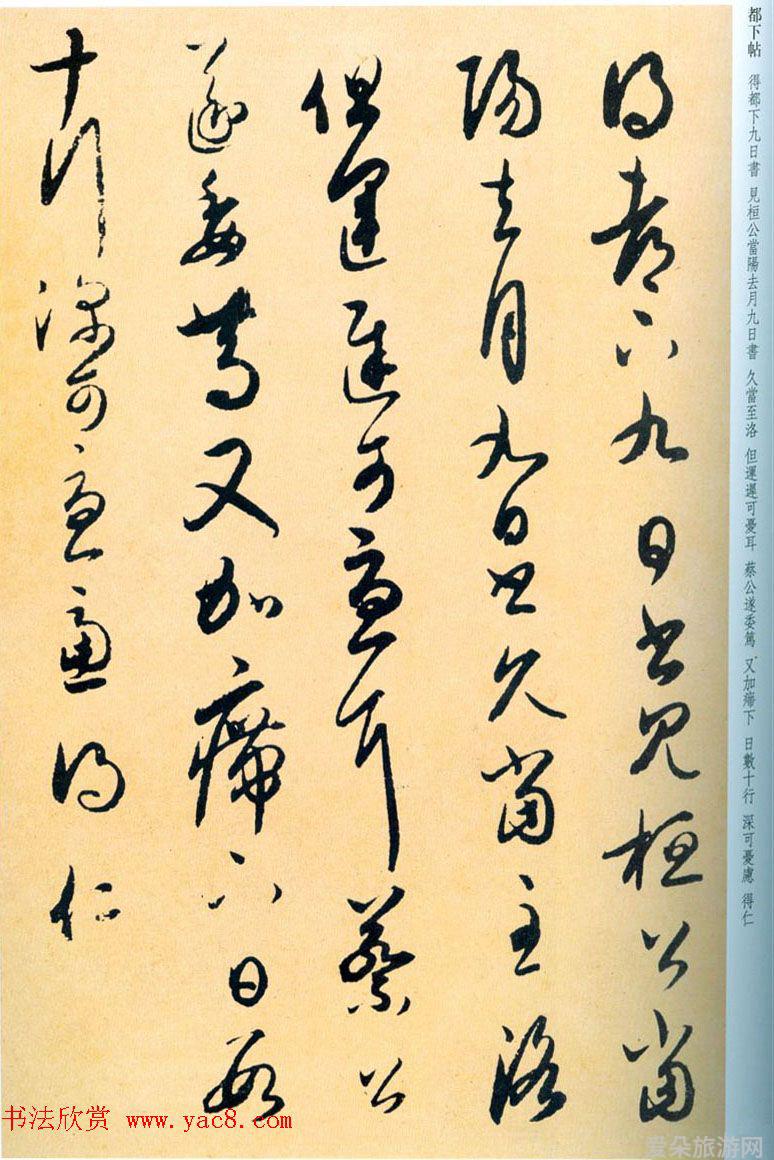 都下帖 得都下九日書 見桓公當陽去月九日書 久當至洛 但運遲可憂耳 蔡公遂委篤 又加㿃下 日數十行 深可憂慮 得仁
得都下九日書見桓公當
陽去月九日書久當至洛
但運遲可憂耳蔡公
遂委篤又加㿃下日數
十行深可憂慮得仁
书法欣赏 www.yac8.com
爱朵旅游网